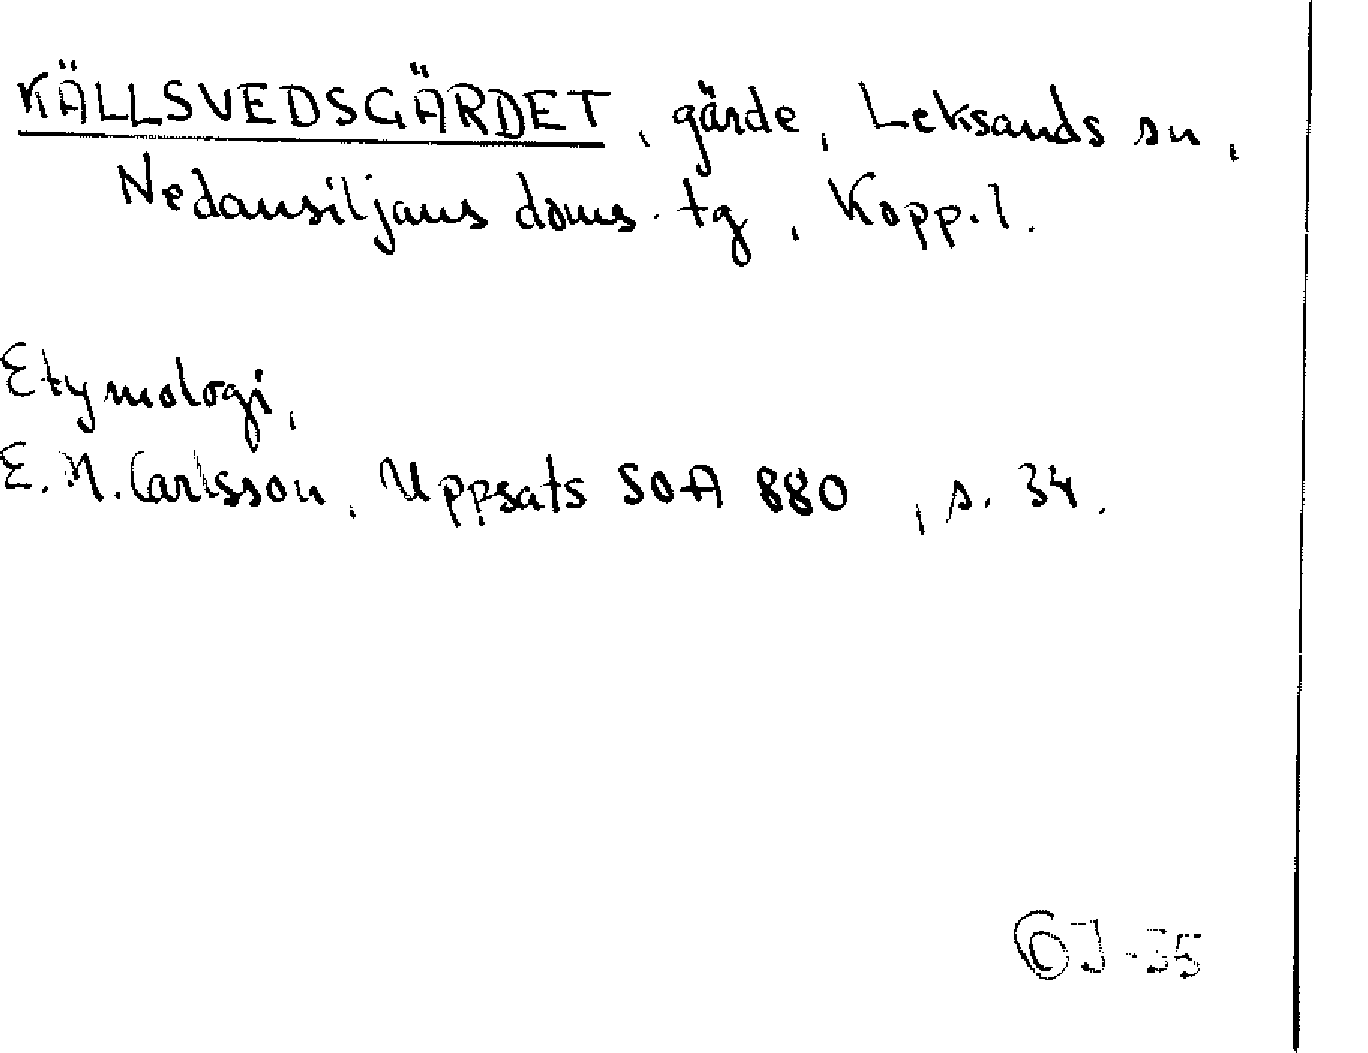 KÄLLSVEDSGÄRDET, gärde, Leksands sn,
Nedansiljans doms.tg, Kopp.l.
Etymologi,
E.M.Carlsson, Uppsats SOA 880, s. 34.